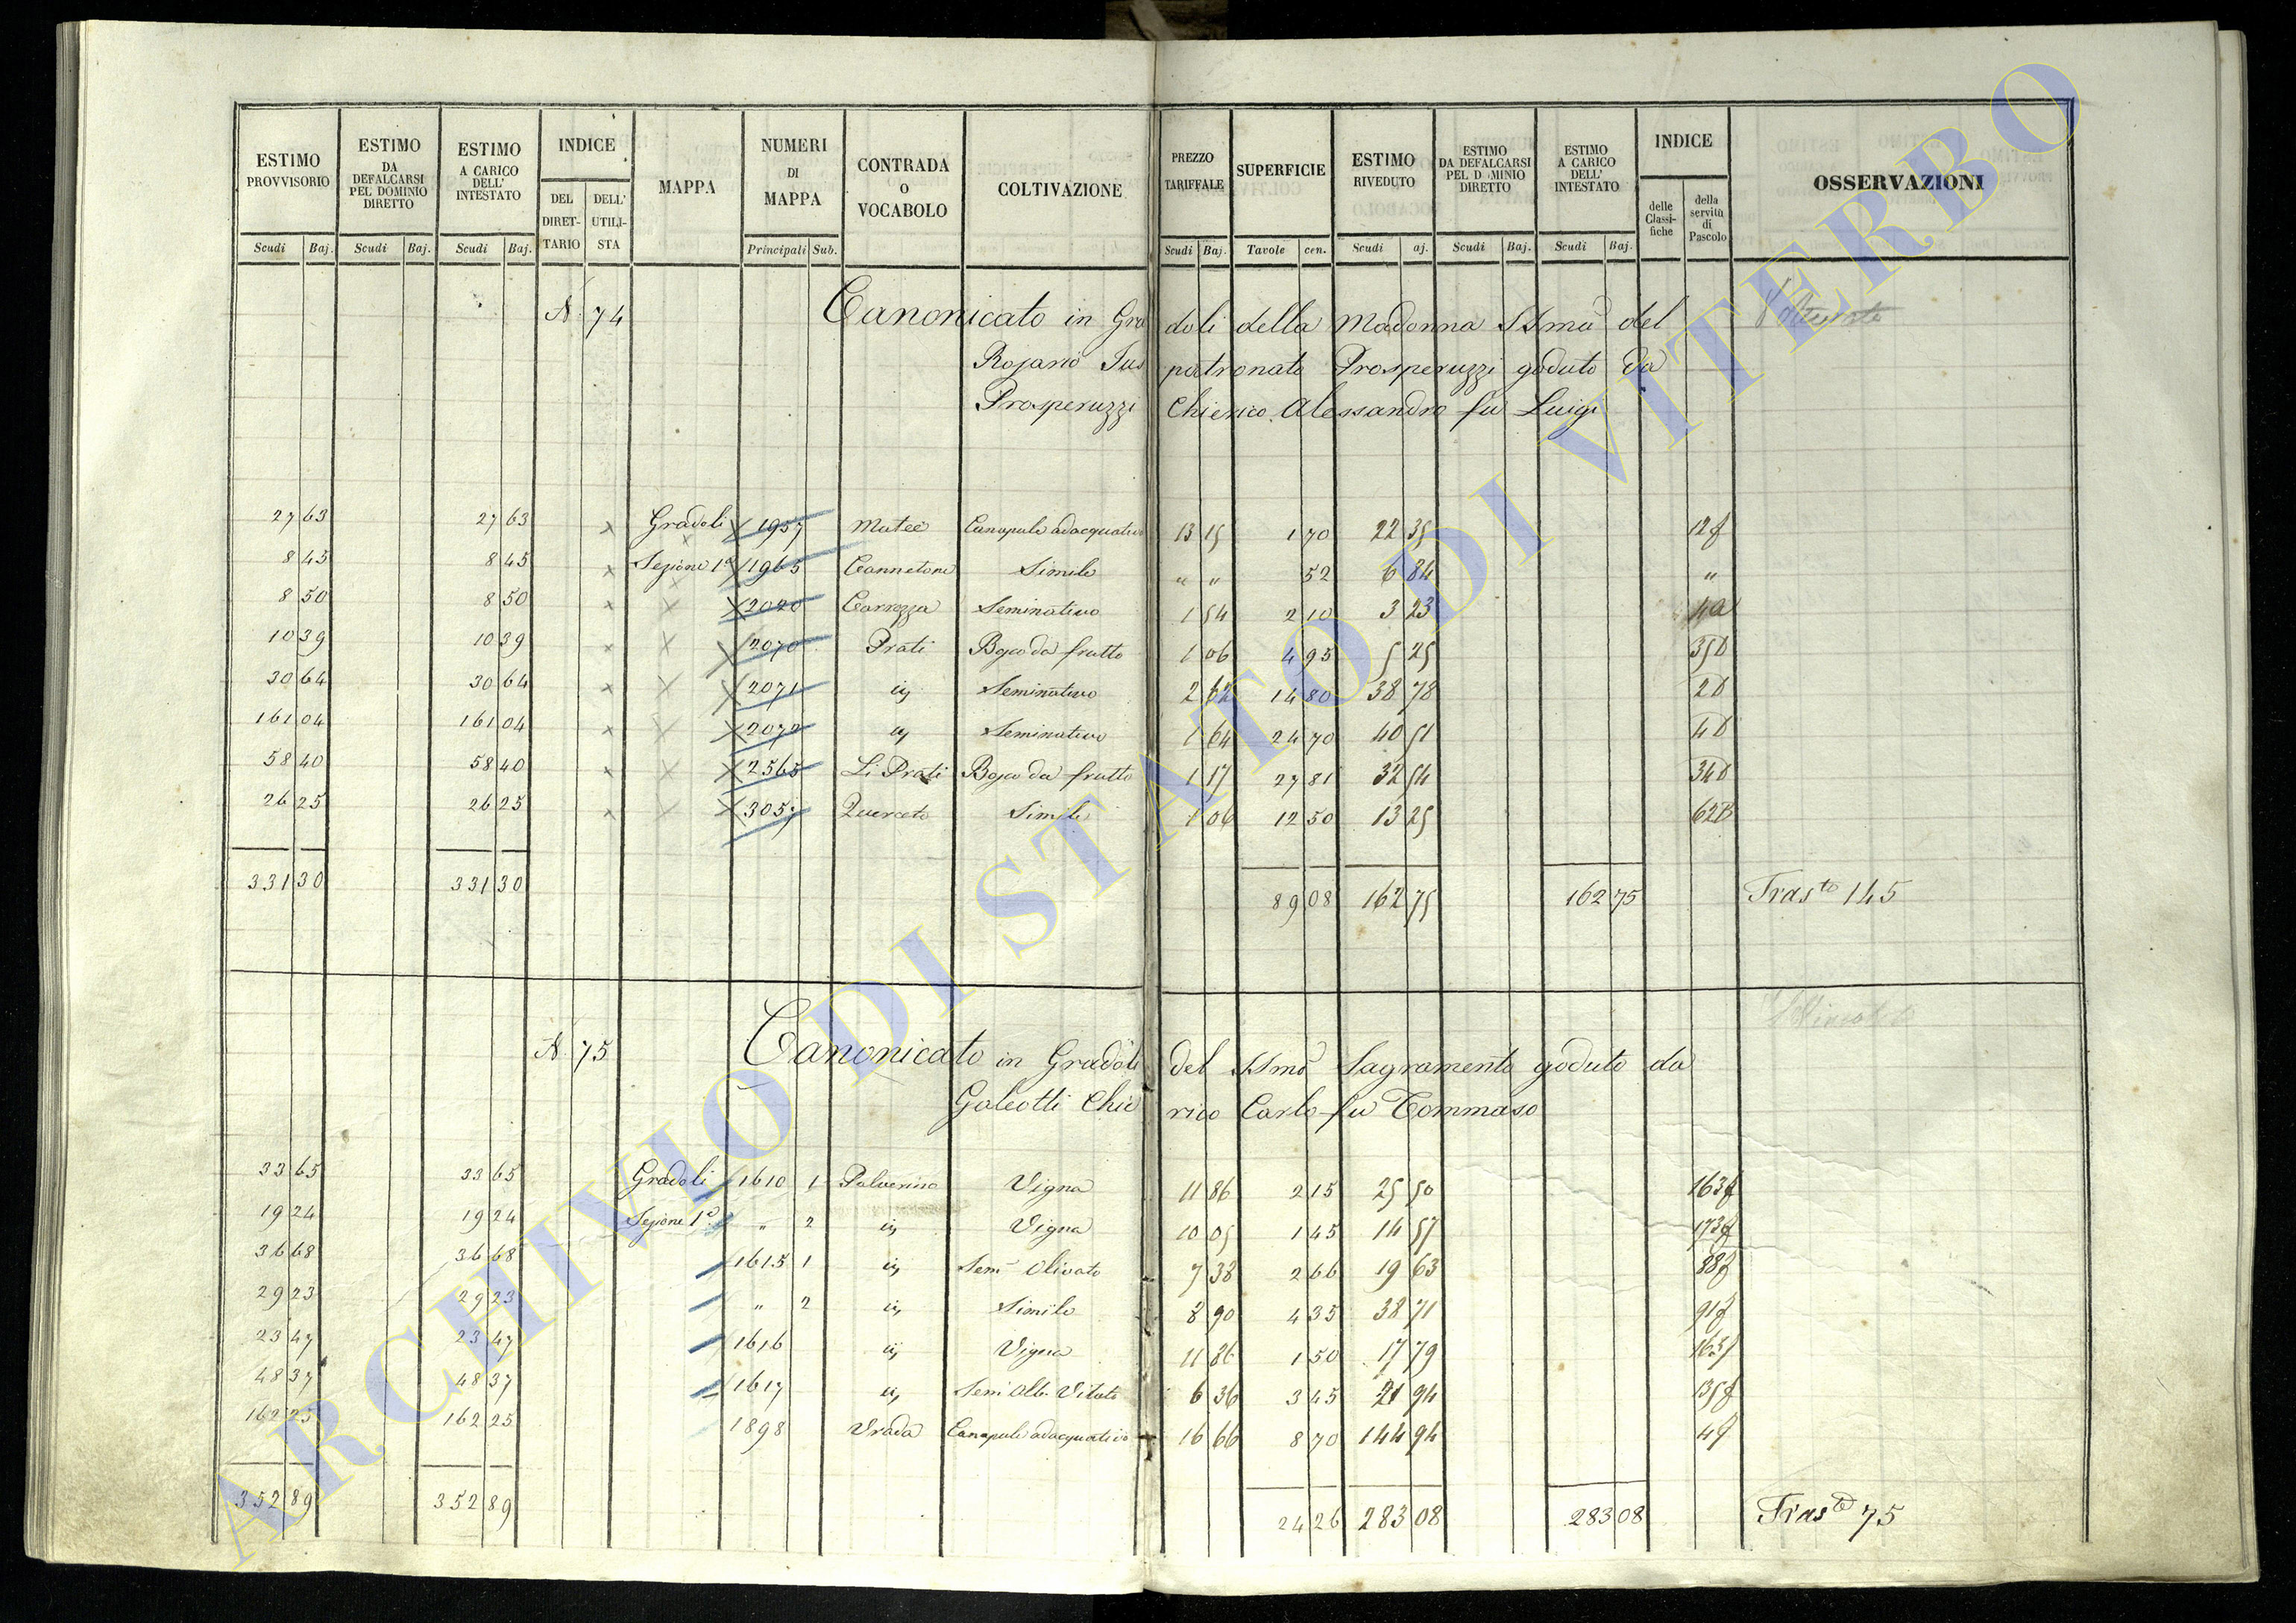 ESTIMO PROVVISORIO | ESTIMO DA DEFALCARSI PEL DOMINIO DIRETTO | ESTIMO A CARICO DELL' INTESTATO | INDICE | MAPPA | NUMERI DI MAPPA | CONTRADA O VOCABOLO | COLTIVAZIONE | PREZZO TARIFFALE | SUPERFICIE | ESTIMO RIVEDUTO | ESTIMO DA DEFALCARSI PEL D MINIO DIRETTO | ESTIMO A CARICO DELL' INTESTATO | INDICE | OSSERVAZIONI
DEL DIRET-TARIO | DELL' UTILI-STA | delle Classi-fiche | della servitù di Pascolo
Scudi | Baj. | Scudi | Baj. | Scudi | Baj. | Principali | Sub. | Scudi | Baj. | Tavole | cen. | Scudi | aj. | Scudi | Baj. | Scudi | Baj.
N. 74 Canonicato in Gradoli della Madonna SSma del
Rosario Jus patronato Prosperuzzi goduto da
Prosperuzzi Chierico Alessandro fu Luigi
27 63 | 27 63 | Gradoli | 1957 | Matee | Canapule adacquativo | 13 15 | 1 70 | 22 35 | 12f
8 45 | 8 45 | Sezione 1a | 1965 | Cannetone | Simile | " " | 52 | 6 84 | "
8 50 | 8 50 | 2020 | Carrozza | Seminativo | 1 54 | 2 10 | 3 23 | 4a
10 39 | 10 39 | 2070 | Prati | Bosco da frutto | 1 06 | 4 95 | 5 25 | 35D
30 64 | 30 64 | 2071 | ivi | Seminativo | 2 62 | 14 80 | 38 78 | 2D
161 04 | 161 04 | 2072 | ivi | Seminativo | 1 64 | 24 70 | 40 51 | 4D
58 40 | 58 40 | 2565 | Li Prati | Bosco da frutto | 1 17 | 27 81 | 32 54 | 34D
26 25 | 26 25 | 3057 | Querceto | Simile | 1 06 | 12 50 | 13 25 | 62B
331 30 | 331 30 | 89 08 | 162 75 | 162 75 | Trasto 145
N. 75 Canonicato in Gradoli del SSmo Sagramento goduto da
Galeotti Chierico Carlo fu Tommaso
33 65 | 33 65 | Gradoli | 1610 | 1 | Polverino | Vigna | 11 86 | 2 15 | 25 50 | 163f
19 24 | 19 24 | Sezione 1a | " | 2 | ivi | Vigna | 10 05 | 1 45 | 14 57 | 173f
36 68 | 36 68 | 1615 | 1 | ivi | Sem. Olivato | 7 38 | 2 66 | 19 63 | 88f
29 23 | 29 23 | " | 2 | ivi | Simile | 8 90 | 4 35 | 38 71 | 91f
23 47 | 23 47 | 1616 | ivi | Vigna | 11 86 | 1 50 | 17 79 | 163f
48 37 | 48 37 | 1617 | ivi | Sem. Alb. Vitato | 6 36 | 3 45 | 21 94 | 135f
162 25 | 162 25 | 1898 | Vrada | Canapule adacquativo | 16 66 | 8 70 | 144 94 | 4f
352 89 | 352 89 | 24 26 | 283 08 | 283 08 | Trasto 75
ARCHIVIO DI STATO DI VITERBO